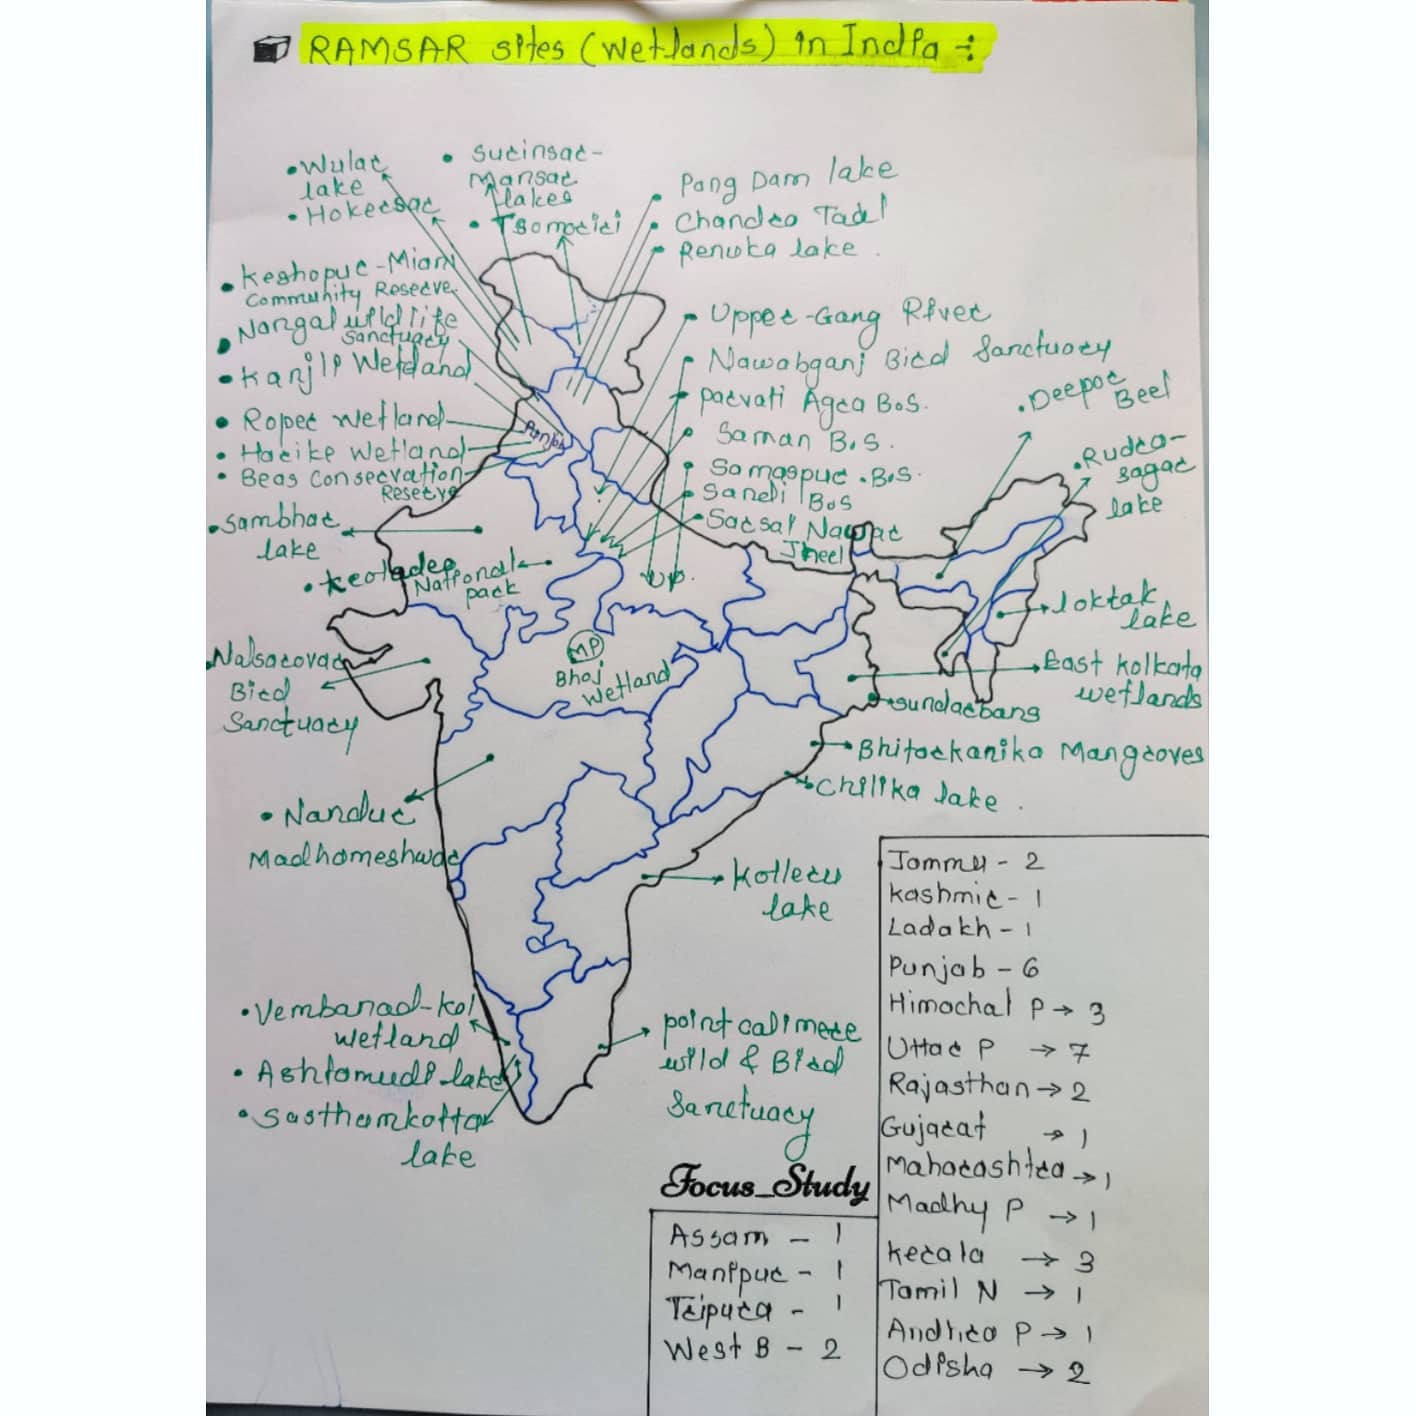 RAMSAR sites (wetlands) in India :
• Wular
lake
• Hokersar
• Surinsar-
Mansar
lakes
• Tsomoriri
Pong Dam lake
Chandra Tadl
Renuka lake .
• Keshopur-Miani
Community Reserve
• Nangal wildlife
Sanctuary
• Kanjli Wetland
• Roper wetland
• Harike wetland
• Beas Conservation
Reserve
Punjab
• Sambhar
lake
• Keoladeo
National
park
Upper-Gang River
Nawabganj Bird Sanctuary
Parvati Agra B.S.
Saman B.S.
Samaspur .B.S.
Sandi B.S
Sarsai Nawar
Jheel
U.P.
• Deepor
Beel
• Rudra-
sagar
lake
loktak
lake
East Kolkata
wetlands
sundarbans
Bhitarkanika Mangroves
Chilika lake .
Nalsarovar
Bird
Sanctuary
MP
Bhoj
wetland
• Nandur
Madhameshwar
Kolleru
lake
• Vembanad-Kol
wetland
• Ashtamudi lake
• Sasthamkotta
lake
point calimere
wild & Bird
Sanctuary
Focus_Study
Assam - 1
Manipur - 1
Tripura - 1
West B - 2
Jammu - 2
Kashmir - 1
Ladakh - 1
Punjab - 6
Himachal P → 3
Uttar P → 7
Rajasthan → 2
Gujarat → 1
Maharashtra → 1
Madhy P → 1
Kerala → 3
Tamil N → 1
Andhra P → 1
Odisha → 2